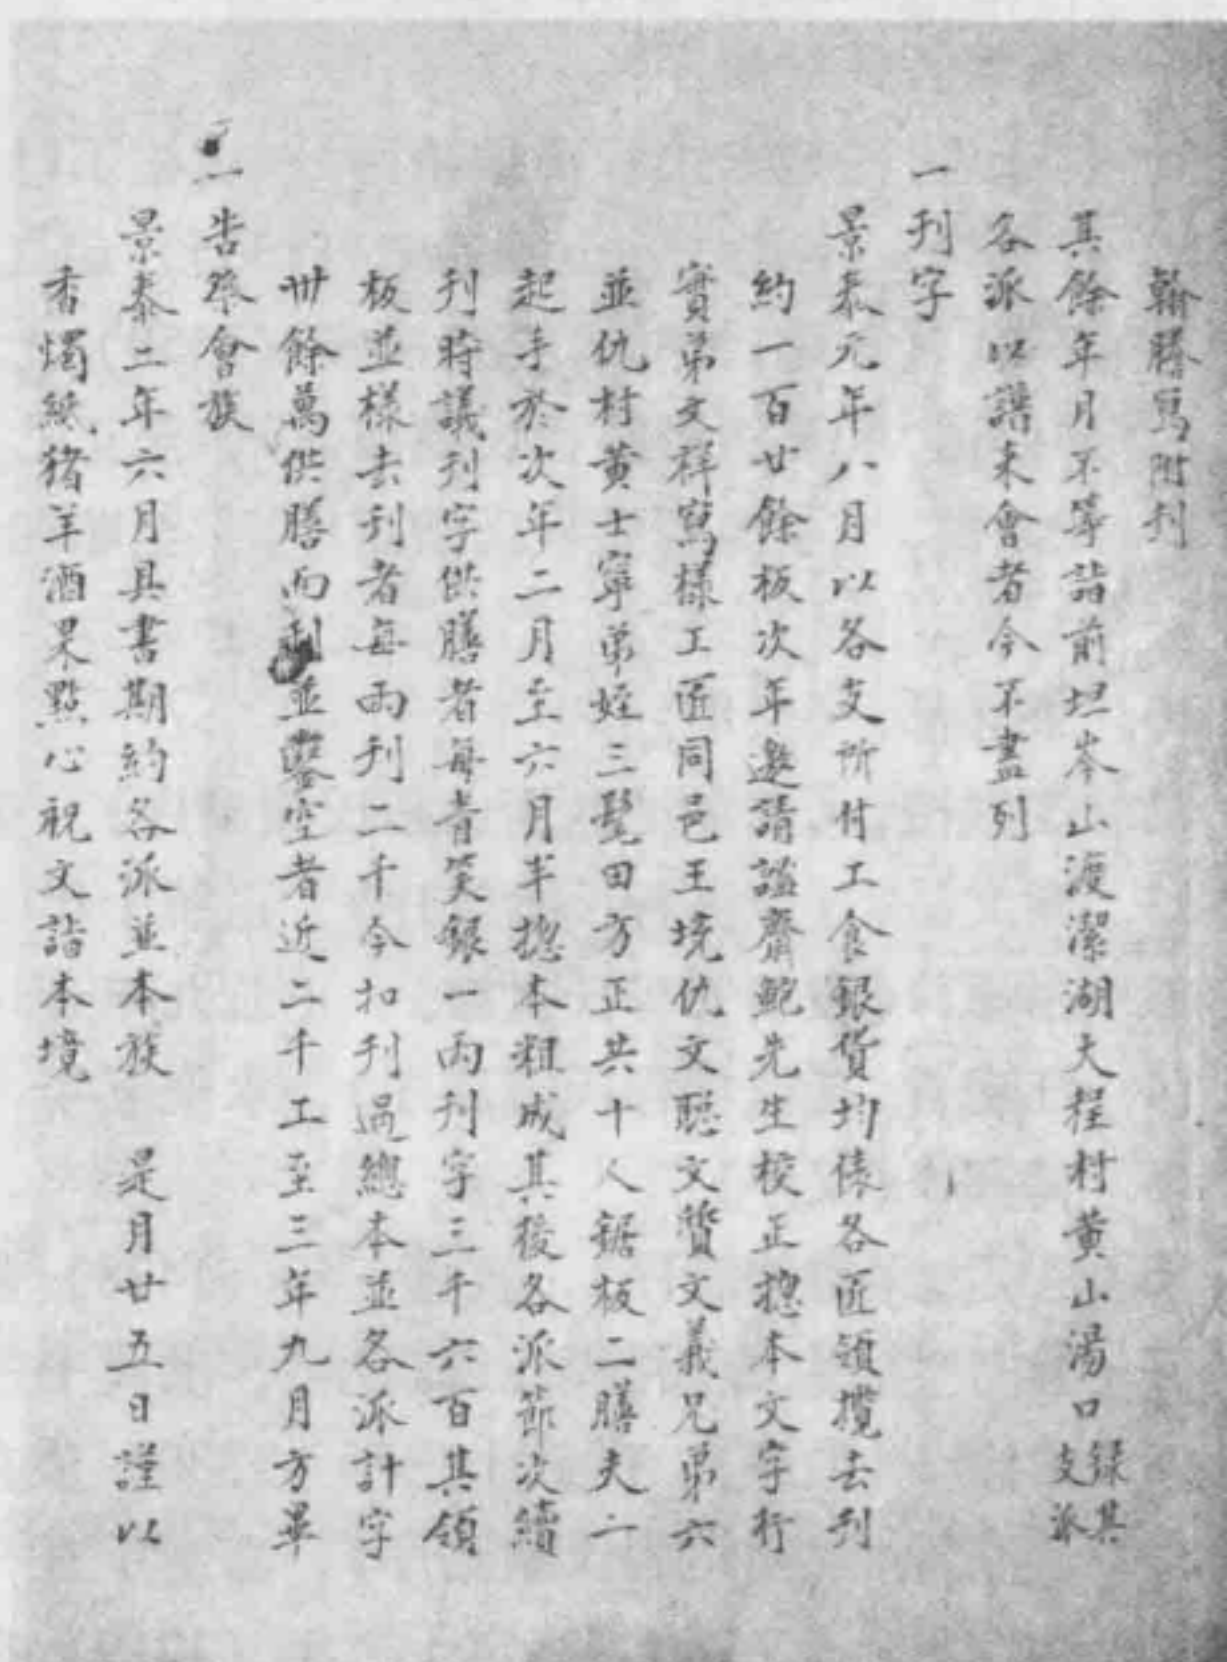 翰謄寫附刋
其餘年月不等詣前坦岑山渡潔湖大程村黄山湯口錄其支派
各派以譜未會者今不盡列
一刋字
景泰元年八月以各支所付工食銀貨均俵各匠領攬去刋
約一百廿餘板次年邀請謐齋鮑先生校正揔本文字行
實弟文祥寫樣工匠同邑王境仇文聰文質文義兄弟六
並仇村黄士寧弟姪三髦田方正共十人鋸板二膳夫一
起手於次年二月至六月半揔本粗成其後各派節次續
刋時議刋字供膳者每者筭銀一兩刋字三千六百其領
板並樣去刋者每兩刋二千今扣刋過總本並各派計字
卅餘萬供膳而刋並鑿空者近二千工至三年九月方畢
一告祭會族
景泰二年六月具書期約各派並本族 是月廿五日謹以
香燭紙猪羊酒果點心祝文詣本境